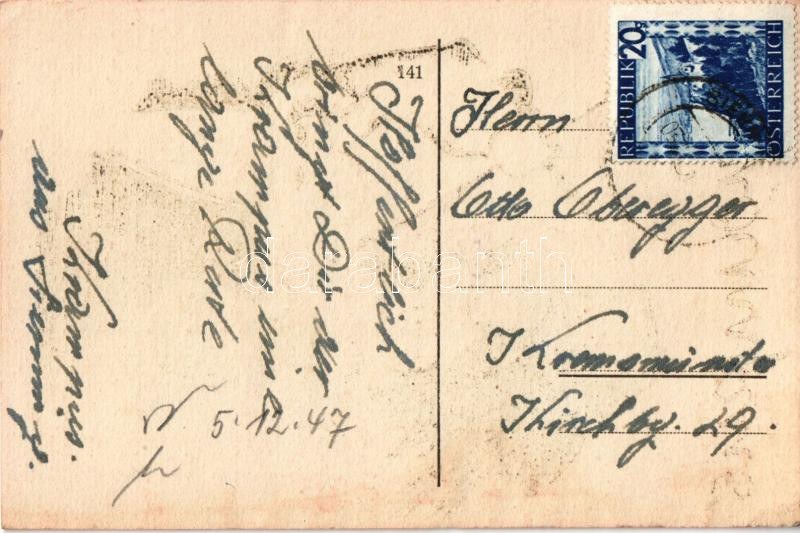 141
Hoffentlich
bringt Dir der
Krampus eine
lange Rute
Krampus.
aus
5.12.47
REPUBLIK ÖSTERREICH
20g
Herrn
Otto Oberegger
Kremsmünster
Kirchbg. 29.
darabanth